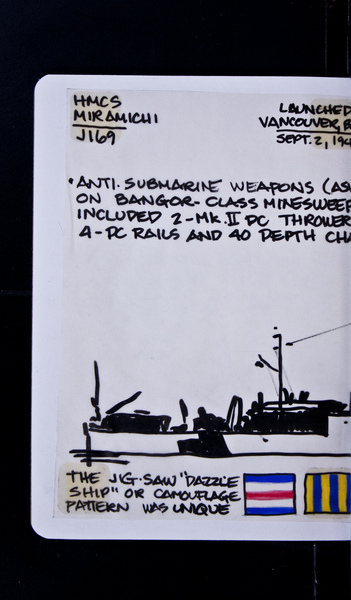 HMCS
MIRAMICHI
J169
LAUNCHED
VANCOUVER, B
SEPT. 2, 194
• ANTI-SUBMARINE WEAPONS (AS
ON BANGOR-CLASS MINESWEEP
INCLUDED 2-MK.II DC THROWER
4-DC RAILS AND 40 DEPTH CHA
THE JIG-SAW "DAZZLE
SHIP" OR CAMOUFLAGE
PATTERN WAS UNIQUE